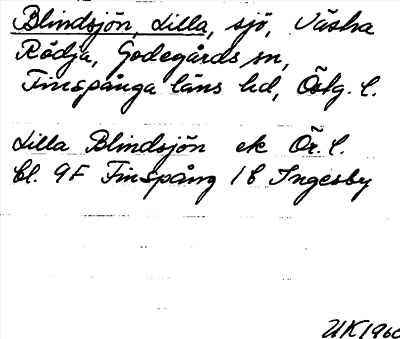 Blindsjön, Lilla, sjö, Västra
Rödja, Godegårds sn,
Finspånga läns hd, Östg. l.
Lilla Blindsjön ek Ör. l.
bl. 9F Finspång 1b Ingesby
UK1960